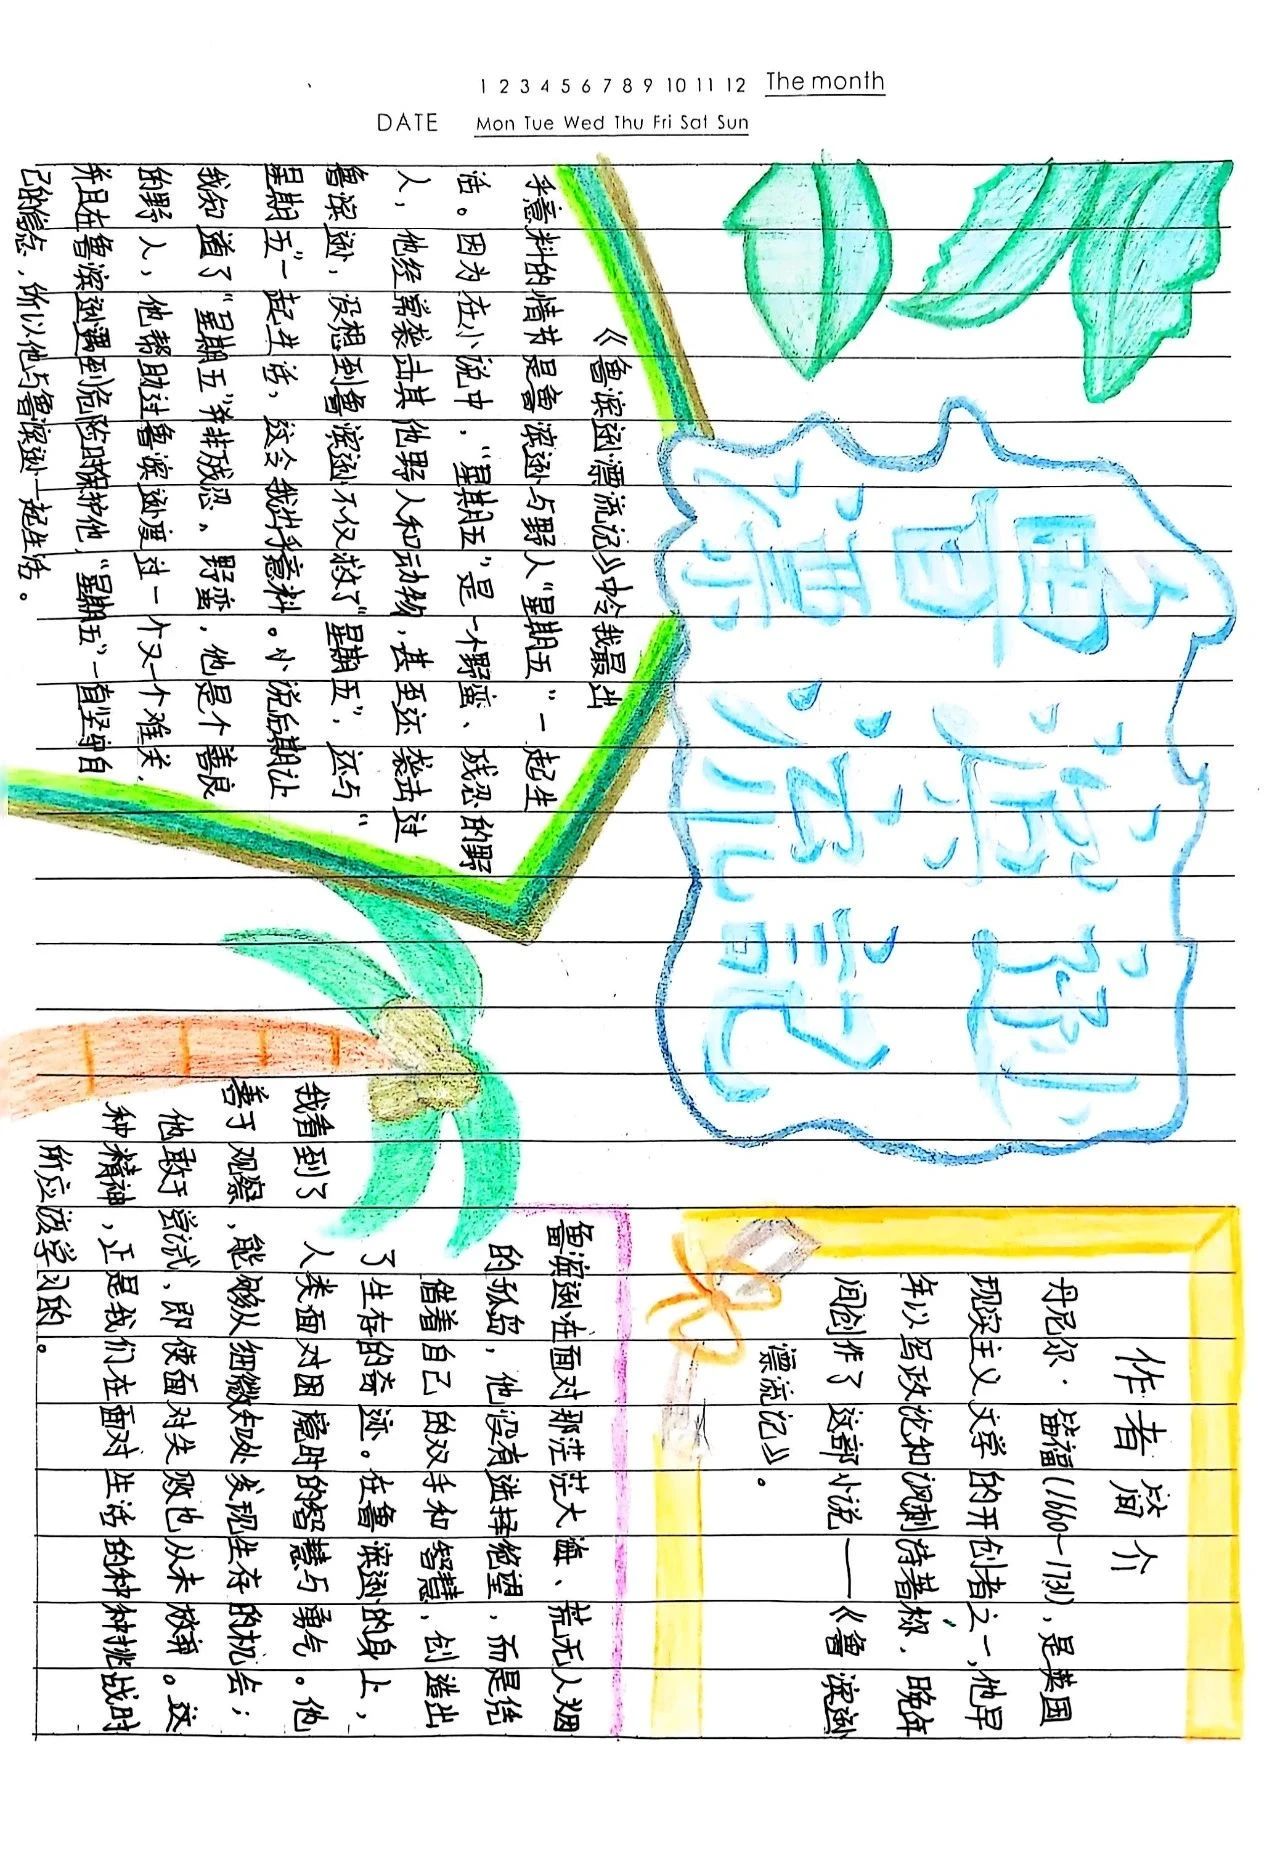 1 2 3 4 5 6 7 8 9 10 11 12 The month
DATE Mon Tue Wed Thu Fri Sat Sun
鲁滨逊
漂流记
作者简介
丹尼尔·笛福(1660-1731),是英国
现实主义文学的开创者之一,他早
年以写政论和讽刺诗著称,晚年
间创作了这部小说——《鲁滨逊
漂流记》。
《鲁滨逊漂流记》中令我最出
乎意料的情节是鲁滨逊与野人“星期五”一起生
活。因为在小说中,“星期五”是一个野蛮、残忍的野
人,他经常袭击其他野人和动物,甚至还袭击过
鲁滨逊,没想到鲁滨逊不仅救了“星期五”,还与“
星期五”一起生活,这令我出乎意料。小说后期让
我知道了“星期五”并非残忍、野蛮,他是个善良
的野人,他帮助过鲁滨逊度过一个又一个难关,
并且在鲁滨逊遇到危险时保护他,“星期五”一直坚守自
己的信念,所以他与鲁滨逊一起生活。
鲁滨逊在面对那茫茫大海、荒无人烟
的孤岛,他没有选择绝望,而是凭
借着自己的双手和智慧,创造出
了生存的奇迹。在鲁滨逊的身上,
我看到了人类面对困境时的智慧与勇气。他
善于观察,能够从细微处发现生存的机会;
他敢于尝试,即使面对失败也从未放弃。这
种精神,正是我们在面对生活的种种挑战时
所应该学习的。